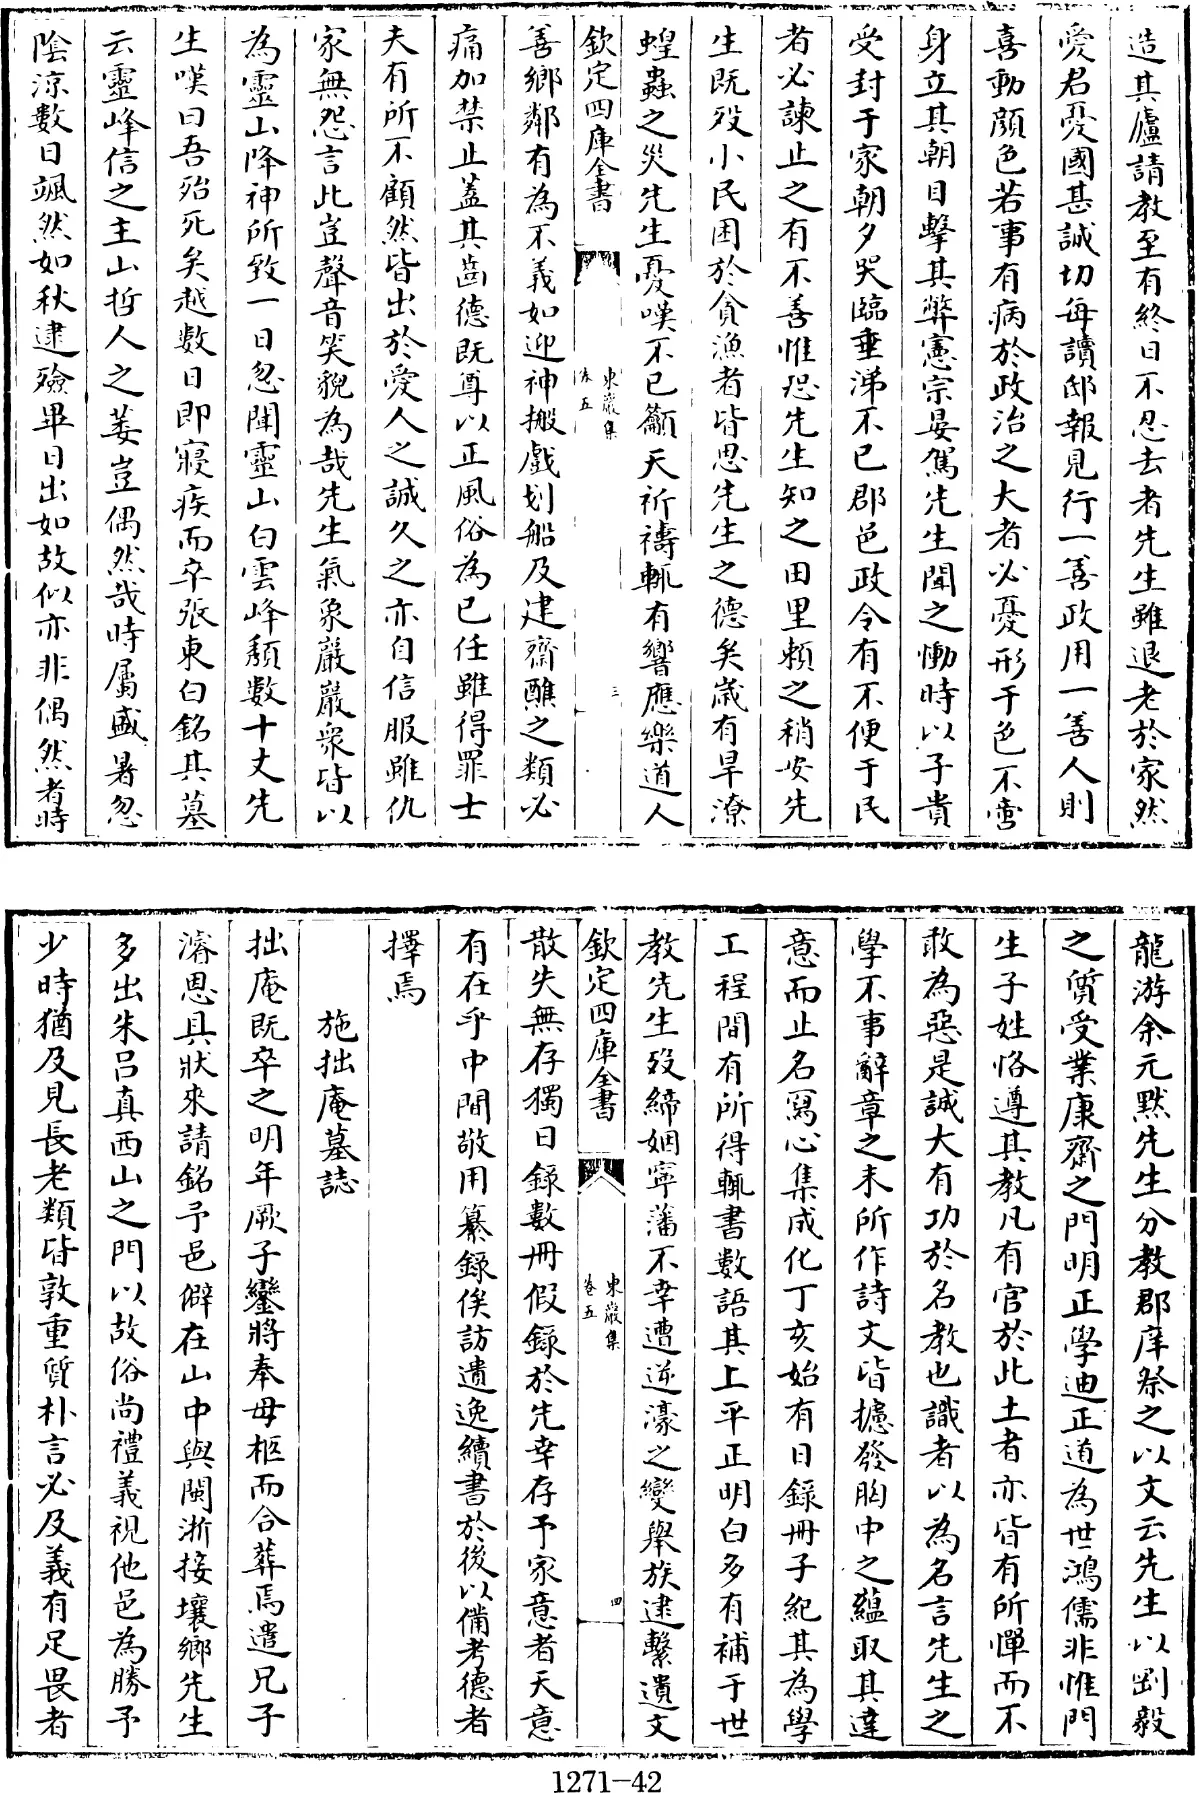 造其廬請教至有終日不忍去者先生雖退老於家然
愛君憂國甚誠切每讀邸報見行一善政用一善人則
喜動顔色若事有病於政治之大者必憂形于色不啻
身立其朝目擊其弊憲宗晏駕先生聞之慟時以子貴
受封于家朝夕哭臨垂涕不已郡邑政令有不便于民
者必諫止之有不善惟恐先生知之田里頼之稍安先
生既殁小民困於貪漁者皆思先生之德矣歳有旱潦
蝗蟲之災先生憂嘆不已籲天祈禱輒有響應樂道人
欽定四庫全書
東巖集
卷五
三
善鄉鄰有為不義如迎神搬戲划船及建齋醮之類必
痛加禁止蓋其齒德既尊以正風俗為已任雖得罪士
夫有所不顧然皆出於愛人之誠久之亦自信服雖仇
家無怨言此豈聲音笑貌為哉先生氣象嚴嚴衆皆以
為靈山降神所致一日忽聞靈山白雲峰頽數十丈先
生嘆曰吾殆死矣越數日即寢疾而卒張東白銘其墓
云靈峰信之主山哲人之萎豈偶然哉時屬盛暑忽
陰涼數日颯然如秋逮殮畢日出如故似亦非偶然者時
龍游余元默先生分教郡庠祭之以文云先生以剛毅
之質受業康齋之門明正學迪正道為世鴻儒非惟門
生子姓恪遵其教凡有官於此土者亦皆有所憚而不
敢為惡是誠大有功於名教也識者以為名言先生之
學不事辭章之末所作詩文皆攄發胸中之蘊取其達
意而止名冩心集成化丁亥始有日錄冊子紀其為學
工程間有所得輒書數語其上平正明白多有補于世
教先生殁締姻寧藩不幸遭逆濠之變舉族逮繫遺文
欽定四庫全書
東巖集
卷五
四
散失無存獨日錄數冊假錄於先幸存予家意者天意
有在乎中間敬用纂錄俟訪遺逸續書於後以備考德者
擇焉
施拙庵墓誌
拙庵既卒之明年厥子鑾將奉母柩而合葬焉遣兄子
濬恩具狀來請銘予邑僻在山中與閩浙接壤鄉先生
多出朱吕真西山之門以故俗尚禮義視他邑為勝予
少時猶及見長老類皆敦重質朴言必及義有足畏者
1271-42